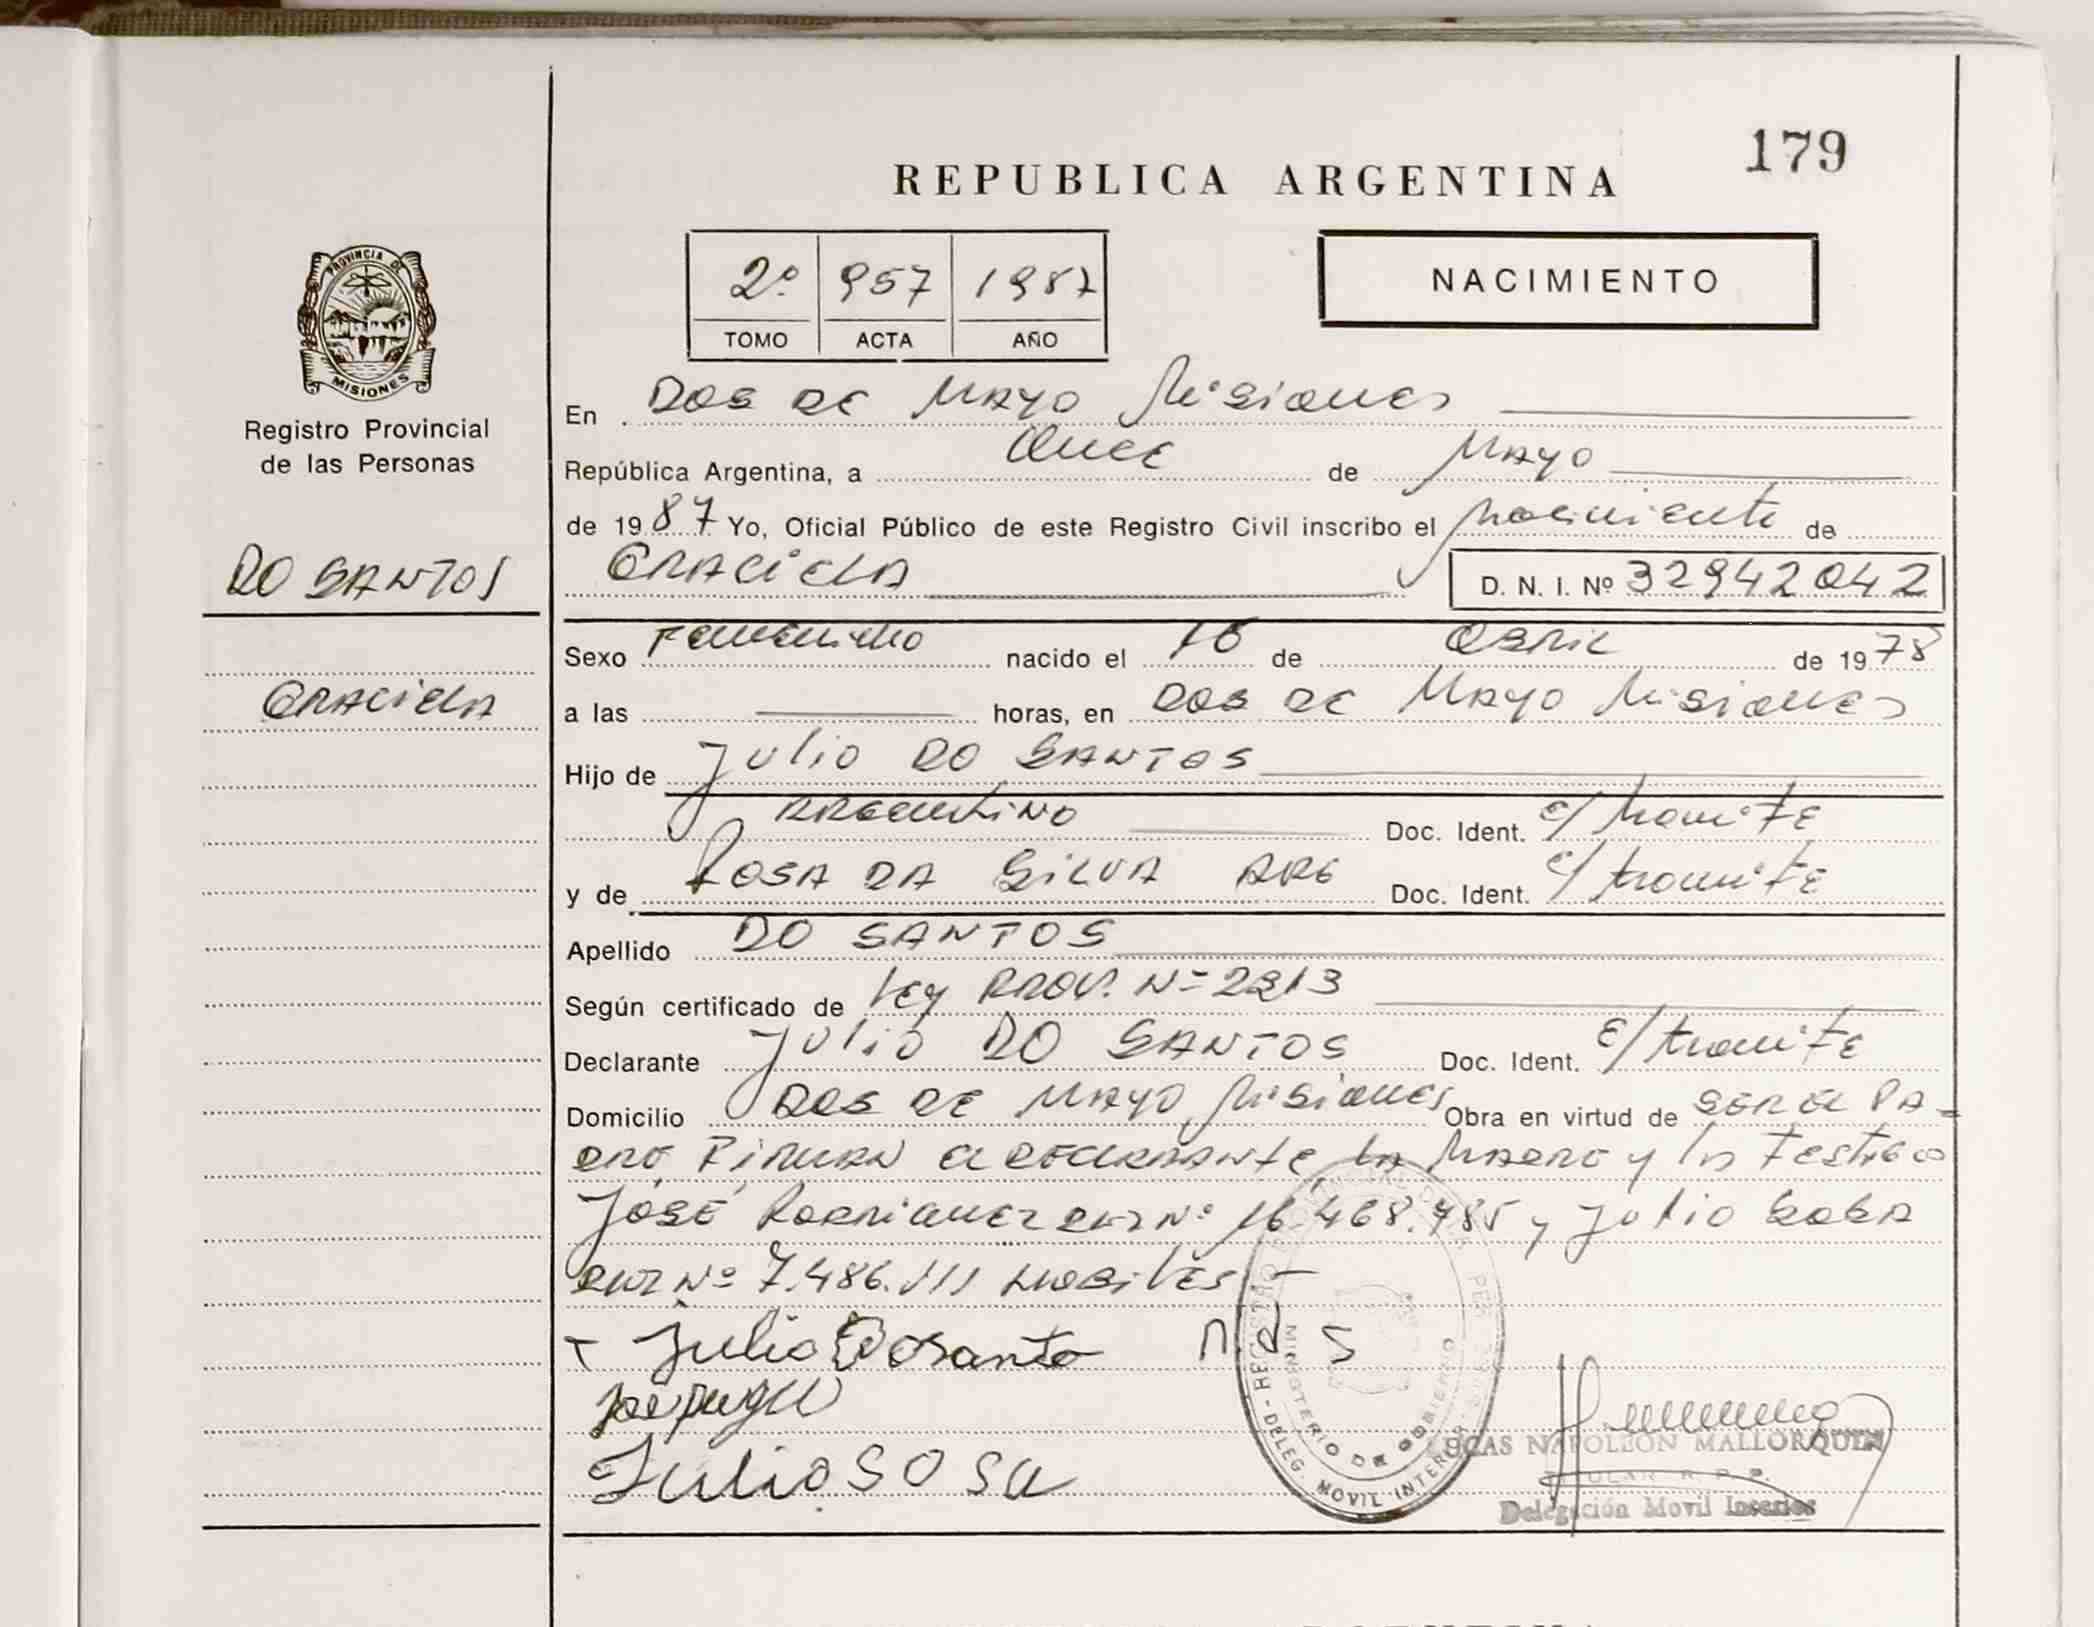 179
REPUBLICA ARGENTINA
2º 957 1987
TOMO ACTA AÑO
NACIMIENTO
PROVINCIA DE
MISIONES
Registro Provincial
de las Personas
DO SANTOS
GRACIELA
En DOS DE MAYO Misiones
República Argentina, a Once de MAYO
de 1987 Yo, Oficial Público de este Registro Civil inscribo el nacimiento de
GRACIELA D. N. I. Nº 32942042
Sexo Femenino nacido el 16 de Abril de 1978
a las horas, en DOS DE MAYO Misiones
Hijo de Julio DO SANTOS
ARGENTINO Doc. Ident. e/tramite
y de ROSA DA SILVA ARG Doc. Ident. e/tramite
Apellido DO SANTOS
Según certificado de Ley PROV. Nº 2213
Declarante Julio DO SANTOS Doc. Ident. E/tramite
Domicilio DOS DE MAYO Misiones Obra en virtud de SER EL PA-
DRE FIRMAN el DECLARANTE LA MADRE y los Testigos
JOSÉ RODRIGUEZ DNI Nº 16.468.985 y Julio SOSA
DNI Nº 7.486.111 HABILES.-
Julio Dosanto R D S
Julio SOSA
LUCAS NAPOLEON MALLORQUIN
TITULAR R. P. P.
Delegación Movil
REGISTRO PROVINCIAL DE LAS PERSONAS
DELEG. MOVIL INTERIOR
MINISTERIO DE GOBIERNO